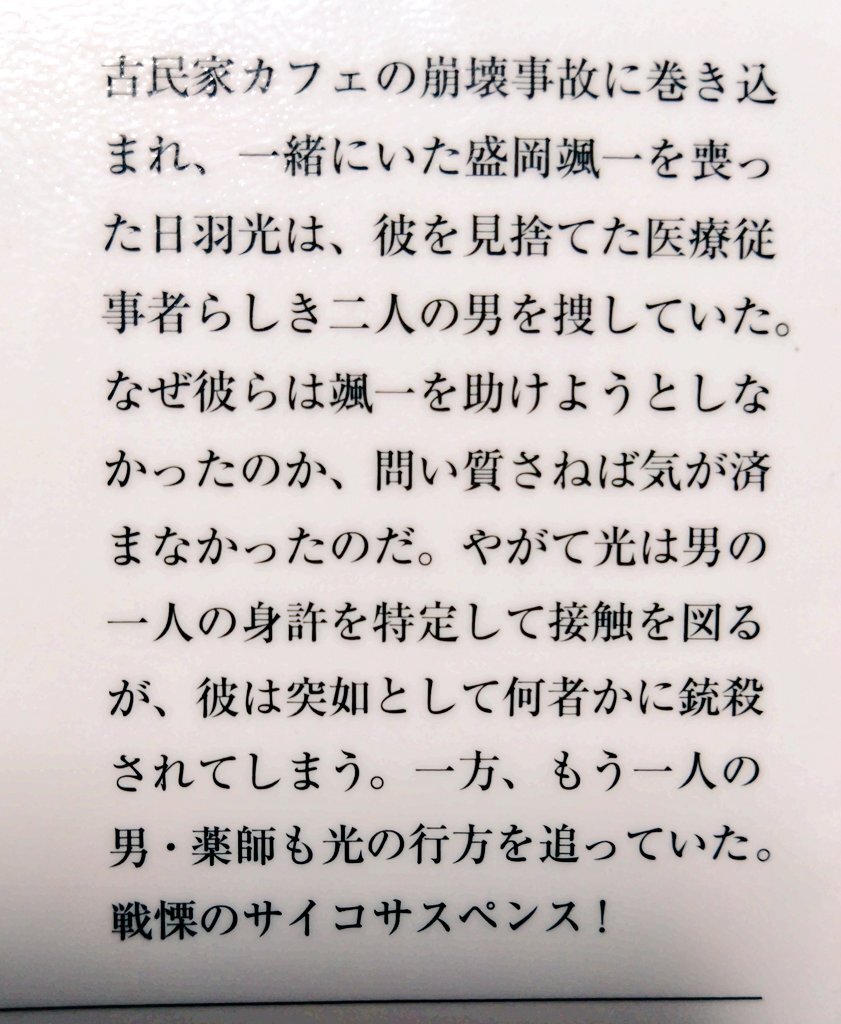 古民家カフェの崩壊事故に巻き込
まれ、一緒にいた盛岡颯一を喪っ
た日羽光は、彼を見捨てた医療従
事者らしき二人の男を捜していた。
なぜ彼らは颯一を助けようとしな
かったのか、問い質さねば気が済
まなかったのだ。やがて光は男の
一人の身許を特定して接触を図る
が、彼は突如として何者かに銃殺
されてしまう。一方、もう一人の
男・薬師も光の行方を追っていた。
戦慄のサイコサスペンス！